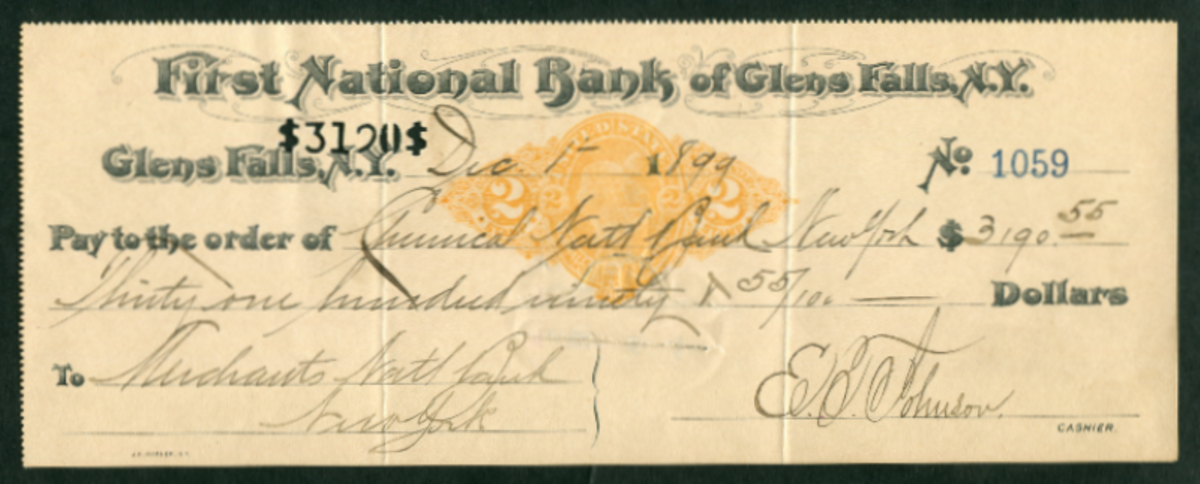 First National Bank of Glens Falls, N.Y.
$3120$
Glens Falls, N.Y. Dec. 15 1899 No. 1059
UNITED STATES
2 2
Pay to the order of Chemical Natl Bank New York $3190.55
Thirty one hundred ninety & 55/100 — Dollars
To Merchants Natl Bank
New York
E. T. Johnson
CASHIER.